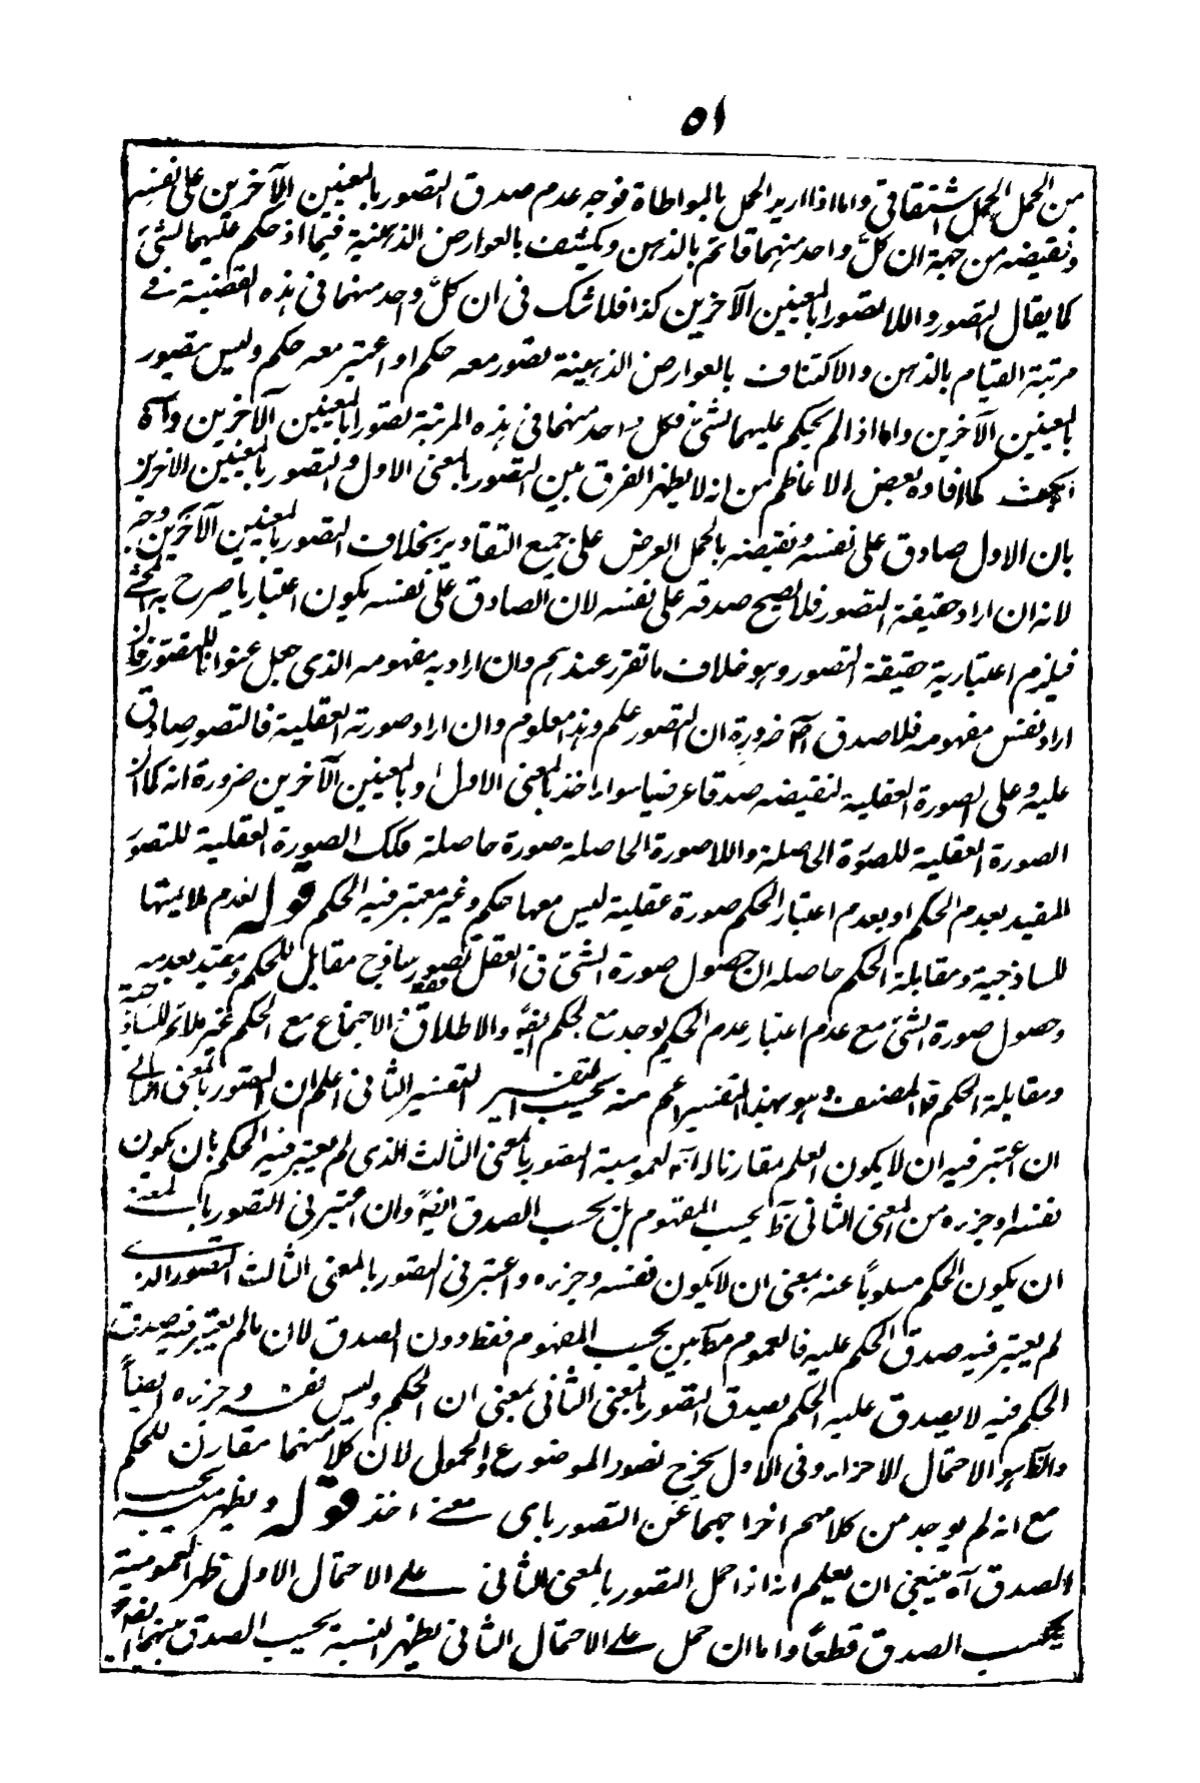 ٥١
من الحمل الحمل الاشتقاقي واما اذا اريد الحمل بالمواطاة فوجه عدم صدق التصور بالمعنيين الآخرين على نفسه
ونقيضه من جهة ان كل واحد منهما قائم بالذهن ومكيف بالعوارض الذهنية فيما اذ حكم عليهما بشئ
كما يقال التصور واللا تصور بالمعنيين الآخرين كذا فلا شك في ان كل واحد منهما في هذه القضية في
مرتبة القيام بالذهن والاكتناف بالعوارض الذهينة تصور معه حكم او اعتبر معه حكم وليس بتصور
بالمعنيين الآخرين واما اذا لم يحكم عليهما بشئ فكل واحد منهما في هذه المرتبة تصور بالمعنيين الآخرين واه
كما افاده بعض الاعاظم من انه لا يظهر الفرق بين التصور بالمعنى الاول والتصور بالمعنيين الآخرين
بان الاول صادق على نفسه ونقيضه بالحمل العرضى على جميع التقادير بخلاف التصور بالمعنيين الآخرين وجه
لانه ان اراد حقيقة التصور فلا يصح صدقه على نفسه لان الصادق على نفسه يكون اعتباريا صرح به
فيلزم اعتبارية حقيقة التصور وهو خلاف ما تقرر عندهم وان اراد به مفهومه الذى جعل عنوانا للتصور فان
اراد نفس مفهومه فلا صدق اصلا ضرورة ان التصور علم وهذا معلوم وان اراد صورته العقلية فالتصور صادق
عليه وعلى الصورة العقلية لنقيضه صدقا عرضيا سواء اخذ بالمعنى الاول او بالمعنيين الآخرين ضرورة انه كما ان
الصورة العقلية للصورة الحاصلة واللاصورة الحاصلة صورة حاصلة فكذلك الصورة العقلية للتصور
المقيد بعدم الحكم او بعدم اعتبار الحكم صورة عقلية ليس معها حكم وغير معتبر فيه الحكم قوله لعدم ملايمتها
للساذجية ومقابلة الحكم حاصله ان حصول صورة الشئ في العقل فقط تصور ساذج مقابل للحكم ومقيد بعدمه
وحصول صورة الشئ مع عدم اعتبار عدم الحكم يوجد مع الحكم ايضا والاطلاق والاجتماع مع الحكم غير ملائم للساذجية
ومقابلة الحكم قوله المصنف وهو بهذا التفسير اعم منه بحسب التفسير الثاني اعلم ان التصور بالمعنى الثاني
ان اعتبر فيه ان لا يكون العلم مقارنا له فعمومية التصور بالمعنى الثالث الذى لم يعتبر فيه الحكم بان يكون
نفسه او جزءه من المعنى الثاني بحسب المفهوم بل بحسب الصدق ايضا وان اعتبر في التصور بالمعنى
ان يكون الحكم مسلوبا عنه بمعنى ان لا يكون نفسه وجزءه واعتبر في التصور بالمعنى الثالث التصور الذى
لم يعتبر فيه صدق الحكم عليه فالعموم بحسب المفهوم فقط دون الصدق لان ما لم يعتبر فيه صدق
الحكم فيه لا يصدق عليه الحكم يصدق التصور بالمعنى الثاني بمعنى ان الحكم وليس نفسه وجزءه ايضا
هو الاحتمال الاحزاء وفى الاول يخرج تصور الموضوع والمحمول لان كلا منهما مقارن للحكم
مع انه لم يوجد من كلامهم اخراجهما عن التصور باى معنى اخذ قوله ويظهر بحسب
الصدق آه ينبغى ان يعلم انه اذا حمل التصور بالمعنى الثانى على الاحتمال الاول ظهر العمومية
بحسب الصدق قطعا واما ان حمل على الاحتمال الثانى يظهر النسبة بحسب الصدق بينهما